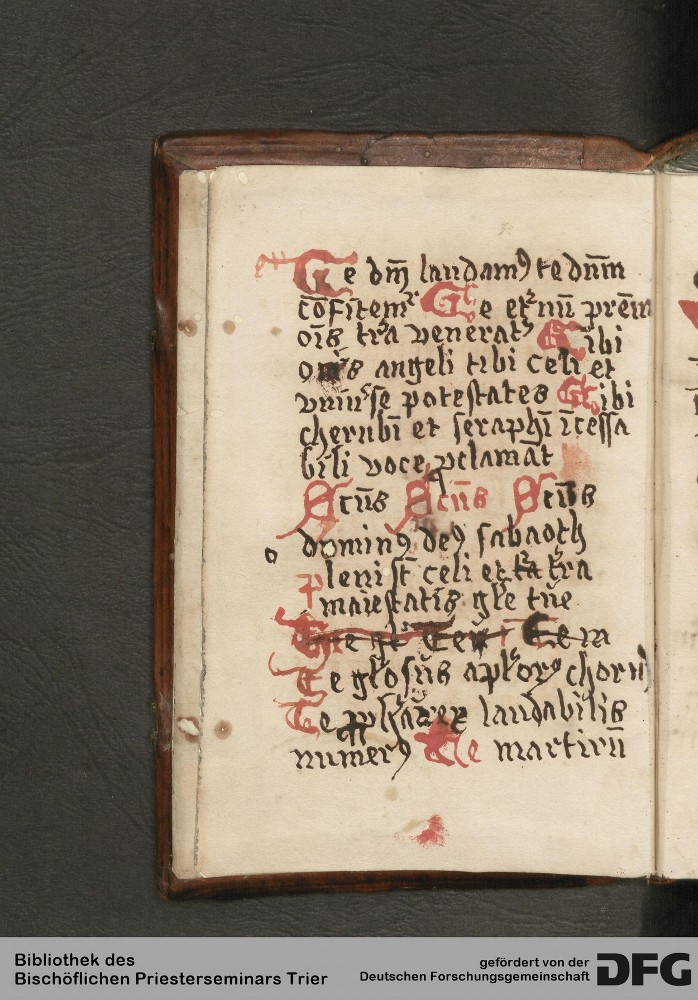 Te dm̄ laudamꝰ te dn̄m
cōfitemʳ Te etʳnū prēm
oīs trᷓa veneratʳ Tibi
om̄s angeli tibi celi et
vniuʳse potestates Tibi
cherubī et seraphī īcessa
bili voce pclamāt
Scūs Scūs Scūs
dominꝰ deꝰ sabaoth
pleni st̄ celi et trᷓa
maiestatis glē tue
Te
Te gl̓osus apl̓oꝝ chorus
Te laudabilis
numerꝰ Te martirū
Bibliothek des
Bischöflichen Priesterseminars Trier
gefördert von der
Deutschen Forschungsgemeinschaft DFG